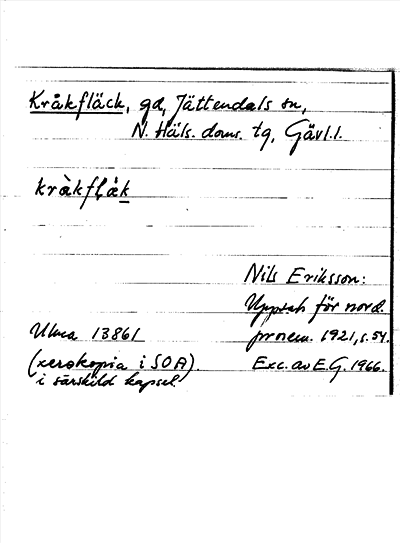 Kråkfläck, gd, Jättendals sn,
N. Häls. doms. tg, Gävl.l.
kràkflàk
Nils Eriksson:
Uppsats för nord.
prosem. 1921, s. 54.
Ulma 13861
(xerokopia i SOA)
i särskild kapsel.
Exc. av E.G. 1966.